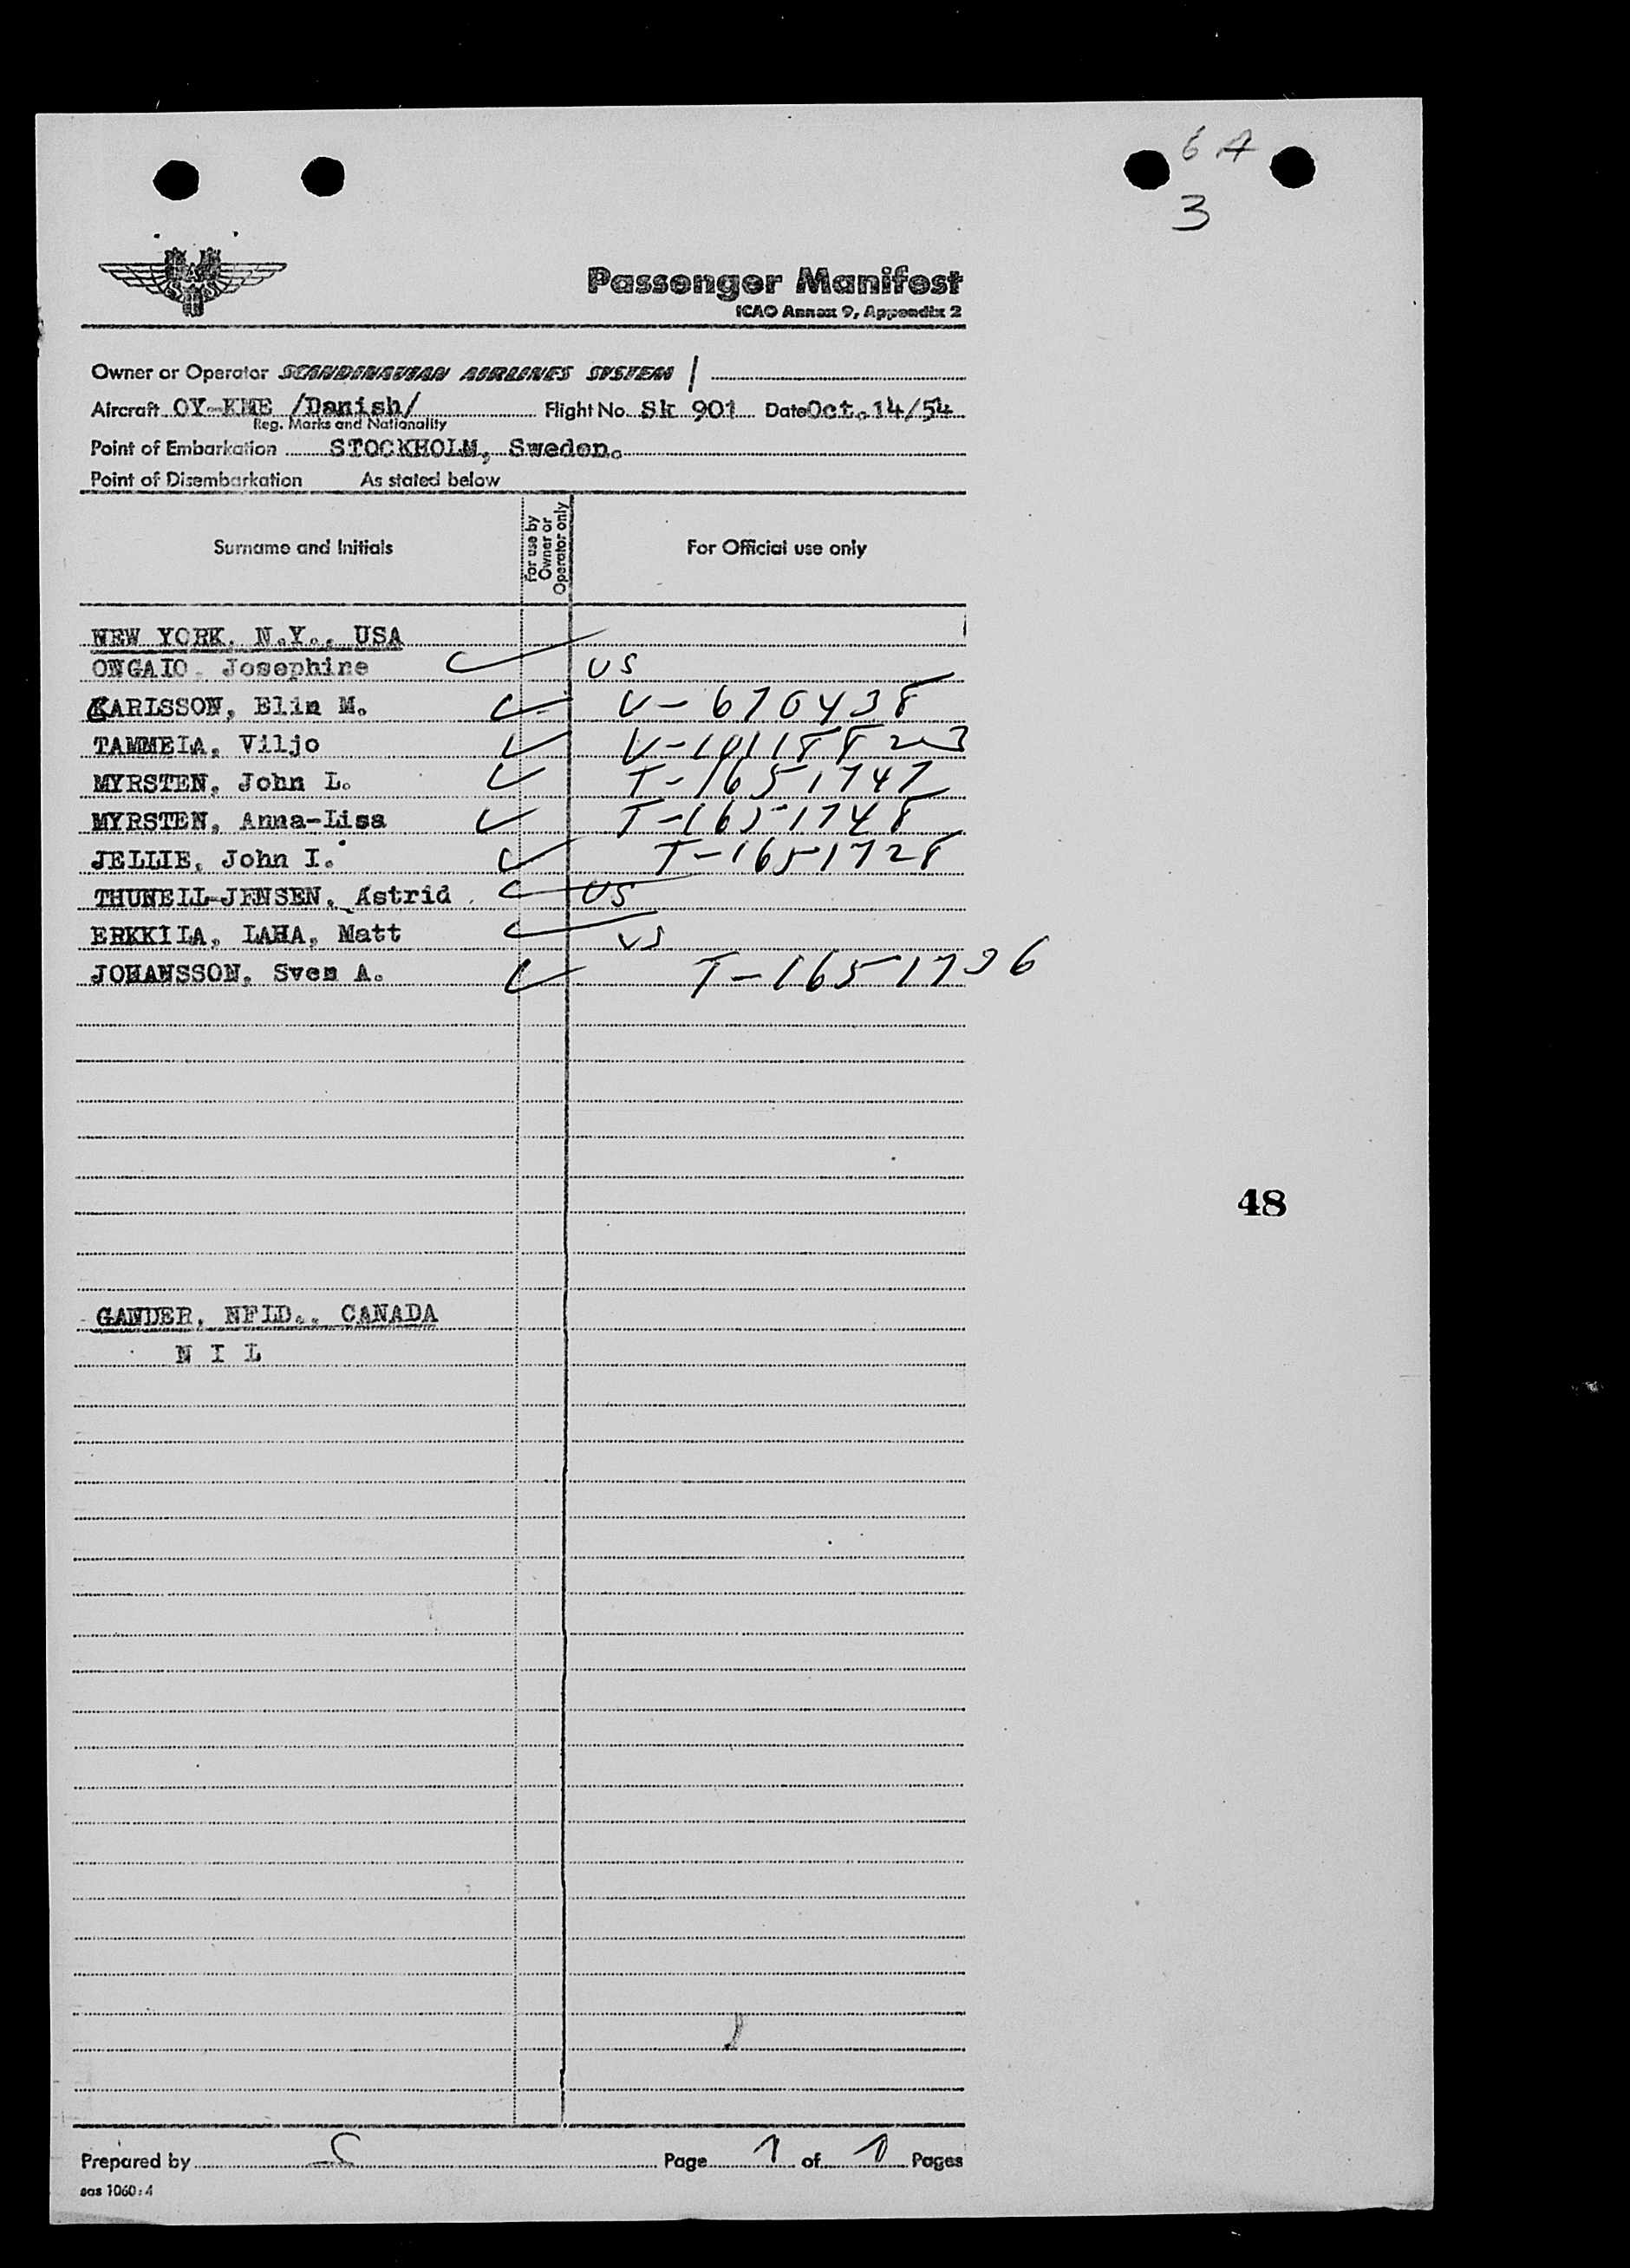 6 A
3
SAS
Passenger Manifest
ICAO Annex 9, Appendix 2
Owner or Operator SCANDINAVIAN AIRLINES SYSTEM /
Aircraft OY-KME /Danish/ Flight No. Sk 901 Date Oct. 14/54
Reg. Marks and Nationality
Point of Embarkation STOCKHOLM, Sweden.
Point of Disembarkation As stated below
Surname and Initials For use by Owner or Operator only For Official use only
NEW YORK, N.Y., USA
ONGAIO, Josephine US
KARLSSON, Elin M. V-676438
TAMMELA, Viljo V-1011882
MYRSTEN, John L. T-1651747
MYRSTEN, Anna-Lisa T-1651748
JELLIE, John I. T-1651728
THUNELL-JENSEN, Astrid US
ERKKILA, LAHA, Matt US
JOHANSSON, Sven A. T-1651736
48
GANDER, NFLD., CANADA
N I L
Prepared by Page 1 of 1 Pages
sas 1060:4